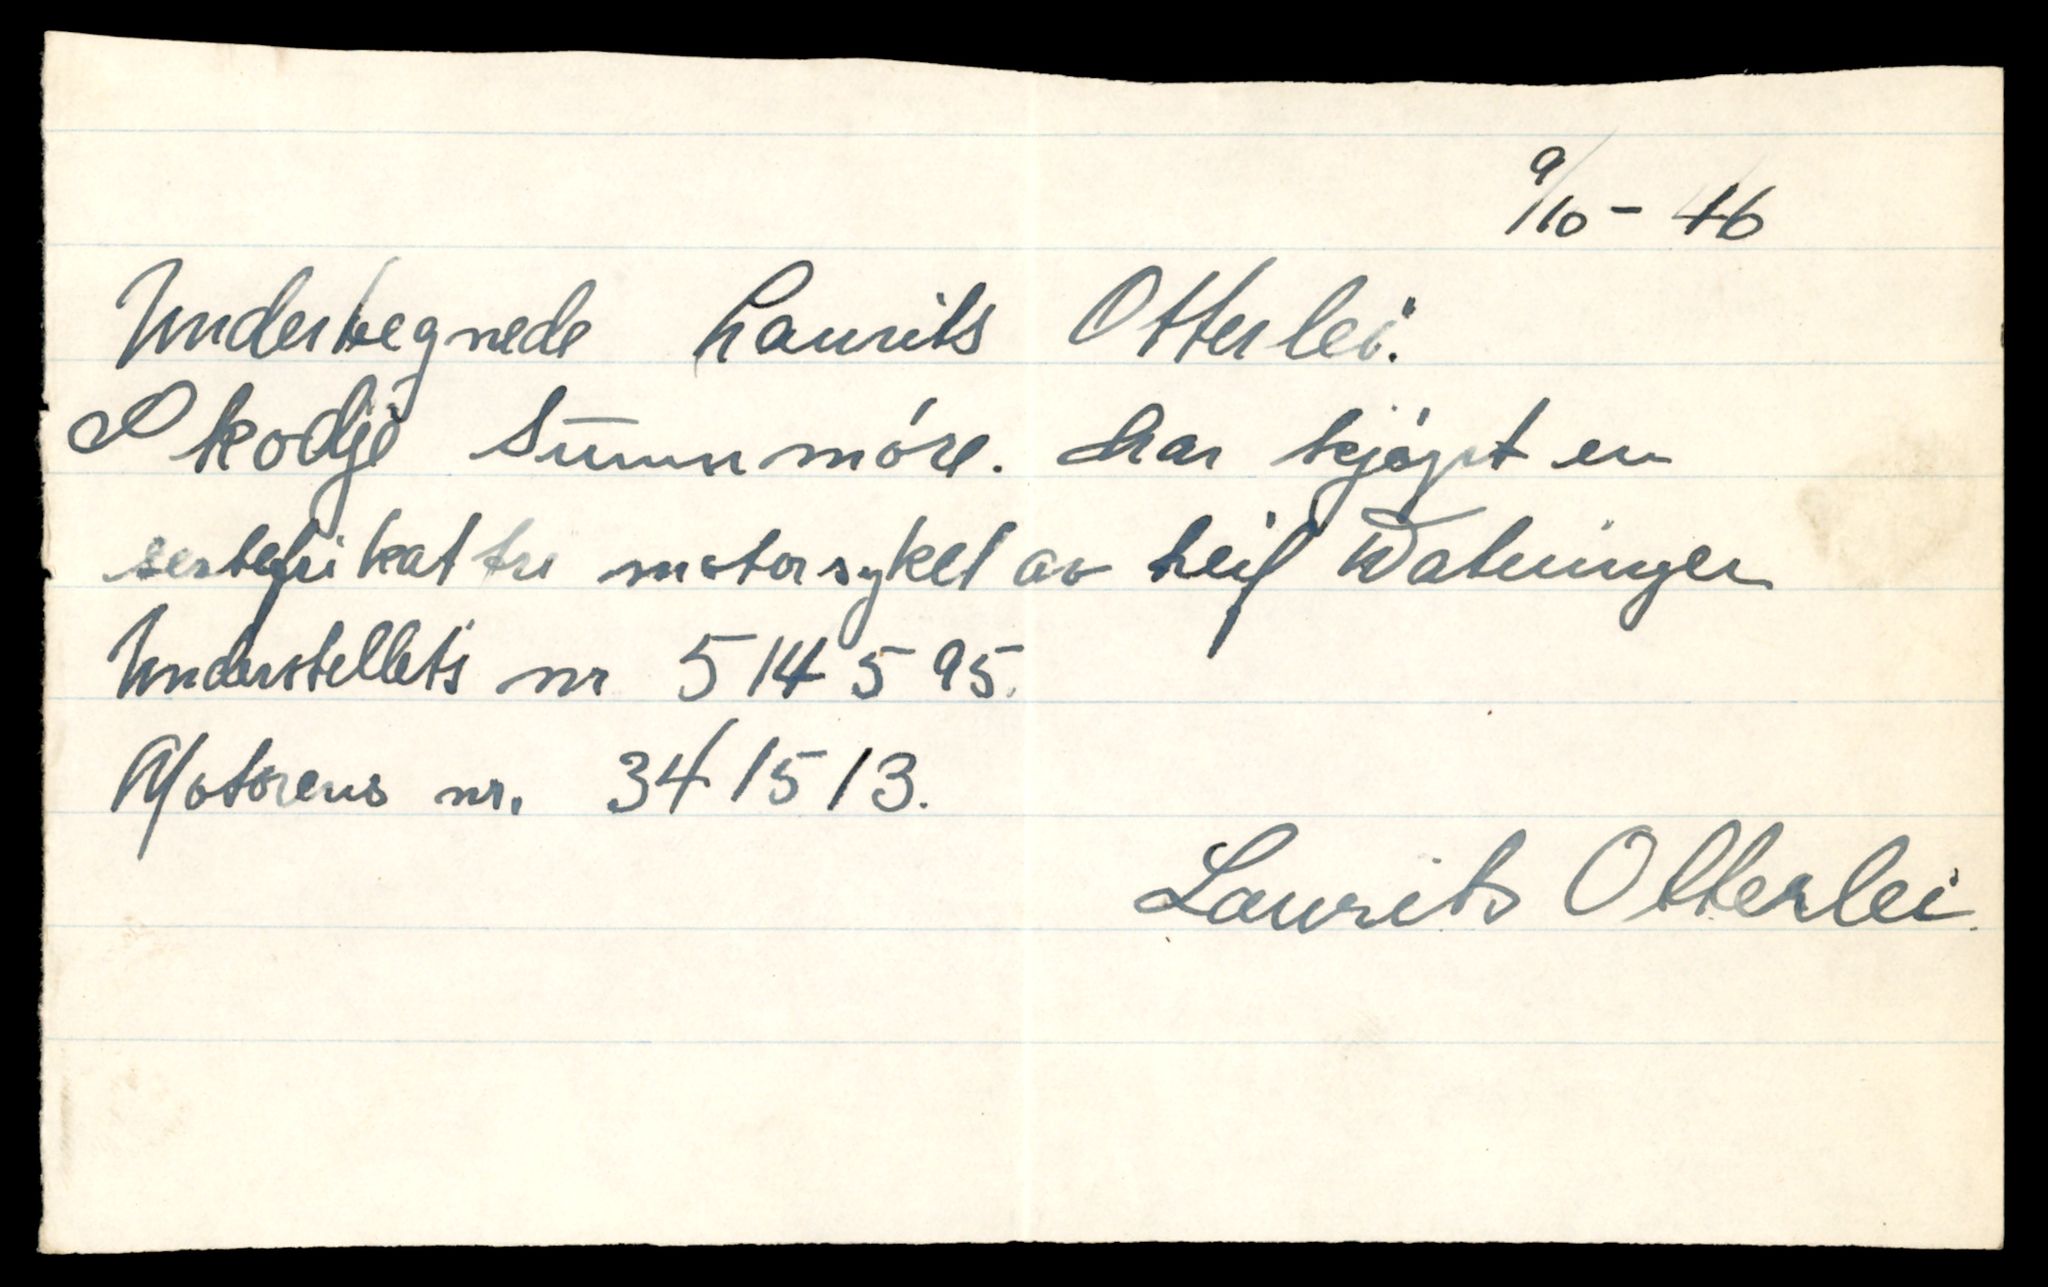 9/10 - 46
Undertegnede Laurits Otterlei.
Skodje Sunnmöre. har kjöpt en
sertefikat fri motorsykel av Leif
Understellets nr 514595.
Motorens nr. 341513.
Laurits Otterlei.